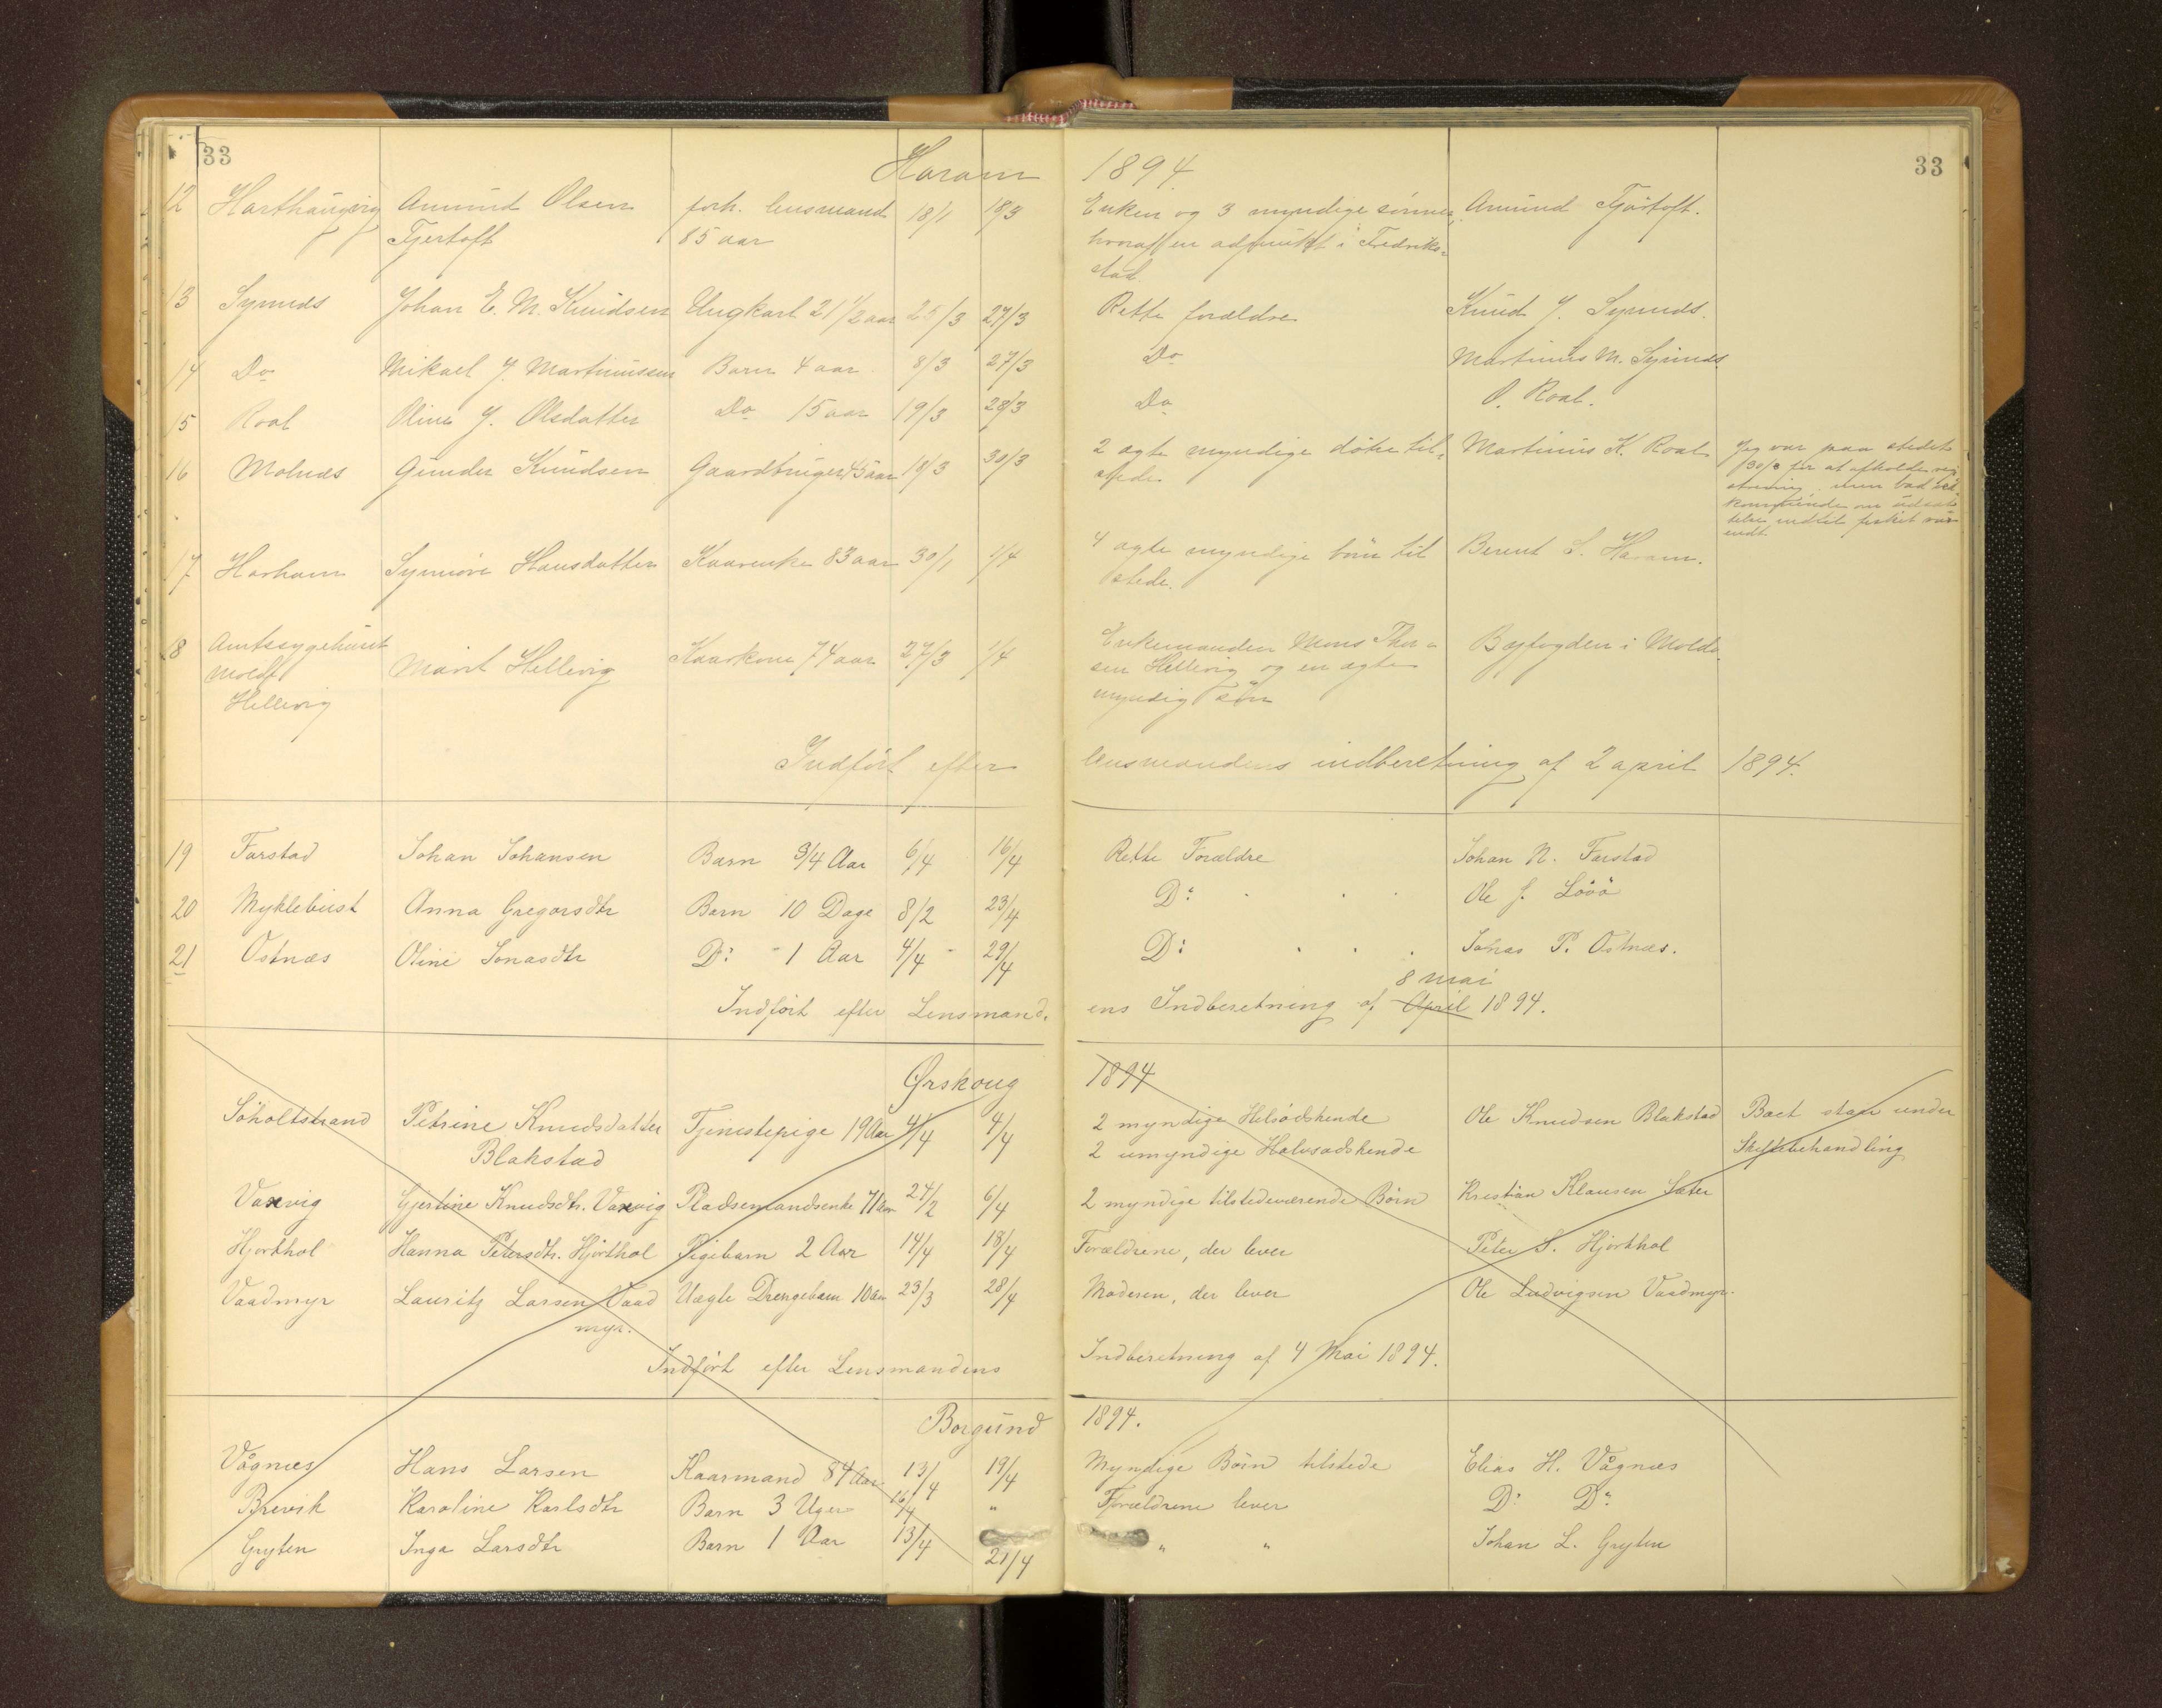 33
33
Haram 1894.
12 Harthaugvig Amund Olsen forh. lensmand 18/1 18/3 Enken og 3 myndige sönner, Amund Fjörtoft.
Fjertoft 85 aar hvoraf en adjunkt i Fredriks-
stad.
13 Synnes Johan E. M. Knudsen Ungkarl 21 1/2 aar 25/3 27/3 Rette forældre Knud J. Synnes.
14 Do Mikael J. Martinussen Barn 4 aar 8/3 27/3 Do Martinus M. Synnes.
15 Roal Oline J. Olsdatter Do 15 aar 19/3 28/3 Do O. Roal.
16 Molnes Gunder Knudsen Gaardbruger 45 aar 18/3 30/3 2 ægte myndige dötre til- Martinus K. Roal Jeg var paa stedet
stede 30/3 for at afholde re-
men bad
om udsæt-
telse indtil fisket var
endt.
17 Harham Synnöve Hansdatter Kaarenke 83 aar 30/1 1/4 4 ægte myndige börn til Berent S. Haram.
stede.
18 Amtssygehuset Molde Marit Hellevig Kaarkone 74 aar 27/3 1/4 Enkemanden Mons Thor- Byfogden i Molde
Hellevig sen Hellevig og en ægte
myndig sön
Indfört efter lensmandens indberetning af 2 april 1894.
19 Farstad Johan Johansen Barn 3/4 Aar 6/4 16/4 Rette Forældre Johan N. Farstad
20 Myklebust Anna Gregorsdtr Barn 10 Dage 8/2 23/4 Do Ole J. Lövö
21 Ostnæs Oline Jonasdtr Do - 1 Aar 4/4 - 29/4 Do Johas P. Ostnæs.
8 mai
Indfört efter Lensmand- ens Indberetning af April 1894.
Ørskoug 1894
Söholtstrand Petrine Knudsdatter Tjenestepige 19 Aar 4/4 4/4 2 myndige Helsödskende Ole Knudsen Blakstad Boet staar under
Blakstad 2 umyndige Halvsødskende Skiftebehandling
Vaxvig Gjertine Knudsdtr. Vaxvig Pladsemandsenke 71 Aar 24/2 6/4 2 myndige tilstedeværende Börn Kristian Klausen Sæter
Hjorthol Hanna Petersdtr. Hjörthol Pigebarn 2 Aar 14/4 18/4 Forældrene, der lever Peter S. Hjorthol
Vaadmyr Lauritz Larsen Vaad Uægte Drengebarn 10 Aar 23/3 28/4 Moderen, der lever Ole Ludvigsen Vaadmyr.
myr.
Indfört efter Lensmandens Indberetning af 4 Mai 1894.
Borgund 1894.
Vågnes Hans Larsen Kaarmand 84 Aar 13/4 19/4 Myndige Börn tilstede Elias H. Vågnæs
Brevik Karoline Karlsdtr Barn 3 Uger 16/4 " Forældrene lever Do Do
Gryten Inga Larsdtr Barn 1 Aar 13/4 21/4 " " Johan L. Gryten